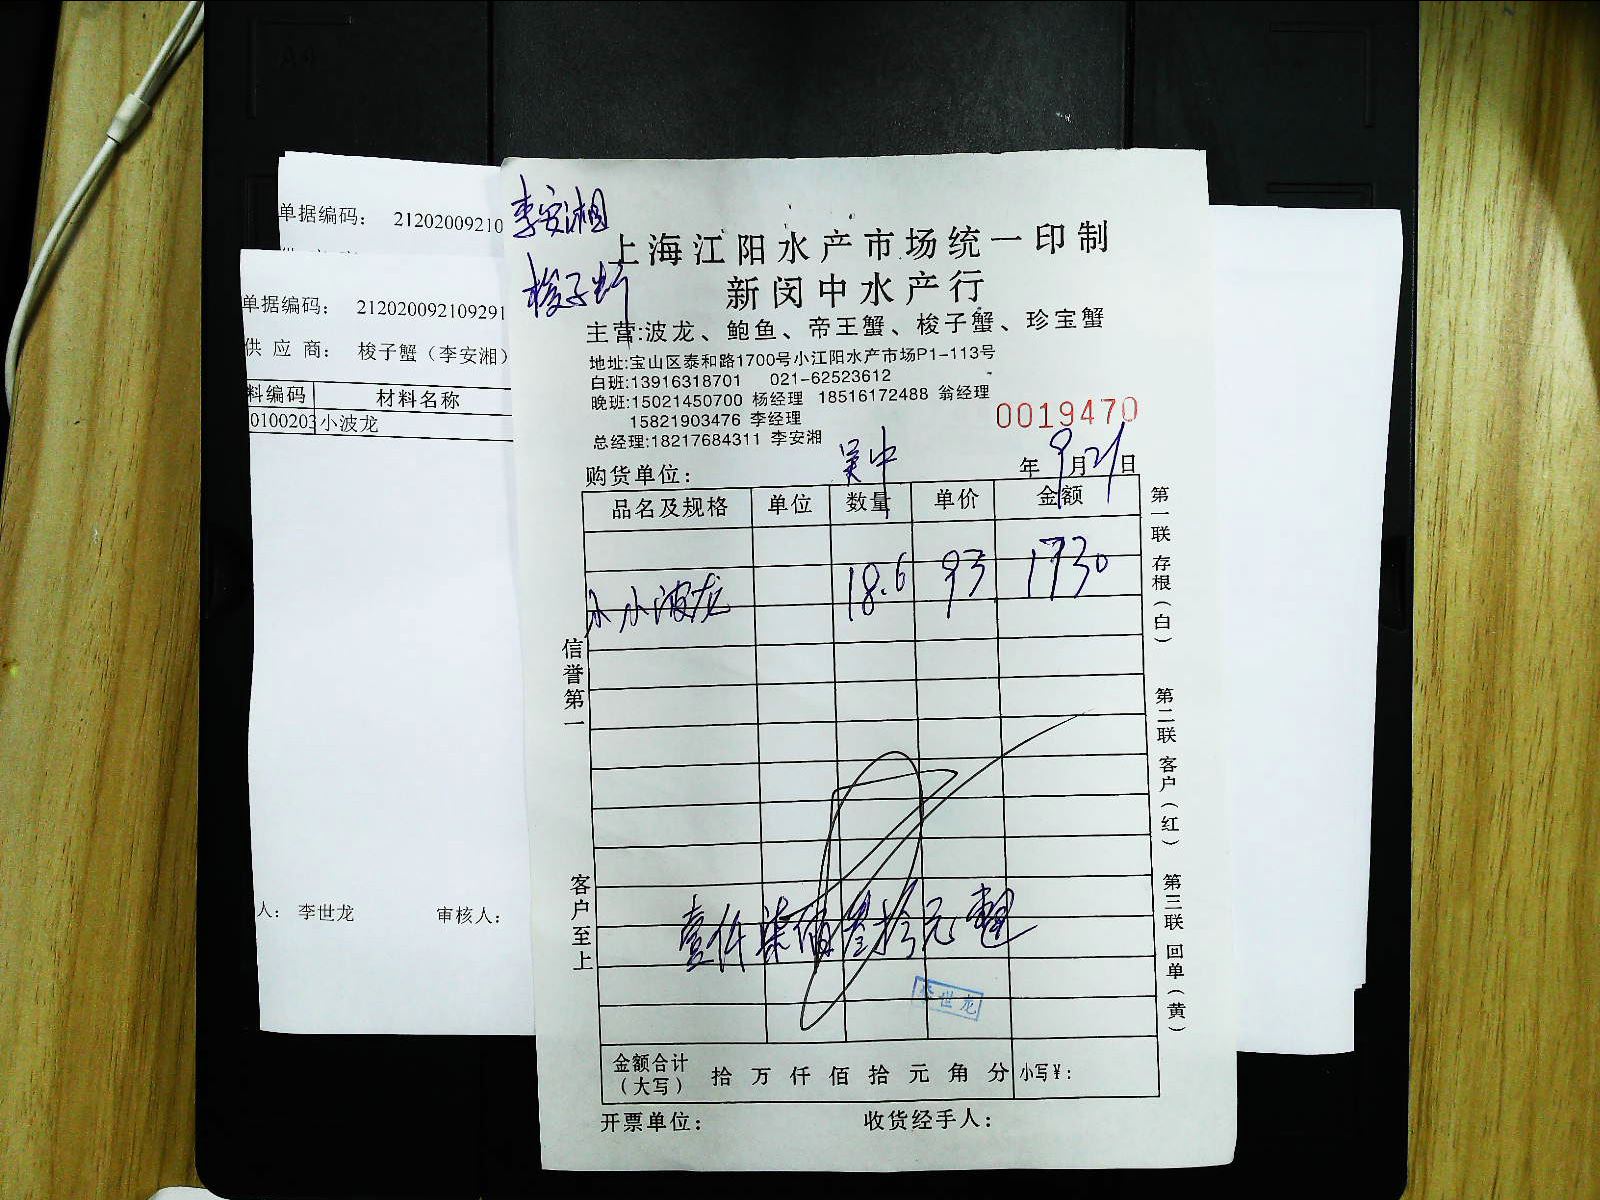 单据编码： 21202009210
单据编码： 212020092109291
供 应 商： 梭子蟹（李安湘）
料编码 材料名称
0100203 小波龙
人： 李世龙 审核人：
李安湘
梭子蟹
上海江阳水产市场统一印制
新闵中水产行
主营:波龙、鲍鱼、帝王蟹、梭子蟹、珍宝蟹
地址:宝山区泰和路1700号小江阳水产市场P1-113号
白班:13916318701 021-62523612
晚班:15021450700 杨经理 18516172488 翁经理
15821903476 李经理
总经理:18217684311 李安湘
0019470
购货单位： 吴中 年 9月21日
品名及规格 单位 数量 单价 金额
小小波龙 18.6 93 1730
壹仟柒佰叁拾元整
李世龙
金额合计（大写） 拾 万 仟 佰 拾 元 角 分 小写￥:
开票单位： 收货经手人：
信誉第一
客户至上
第一联 存根（白）
第二联 客户（红）
第三联 回单（黄）